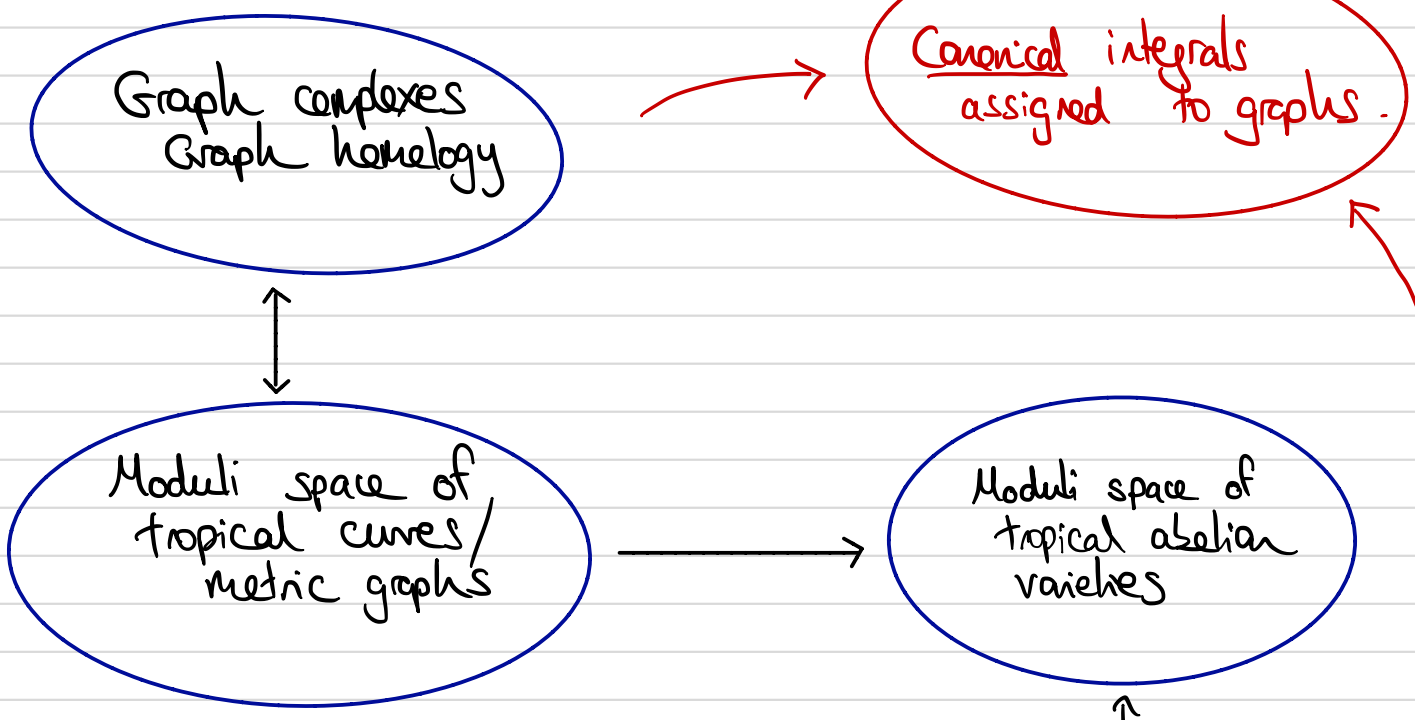 Graph complexes
Graph homology
Canonical integrals
assigned to graphs.
Moduli space of
tropical curves/
metric graphs
Moduli space of
tropical abelian
varieties